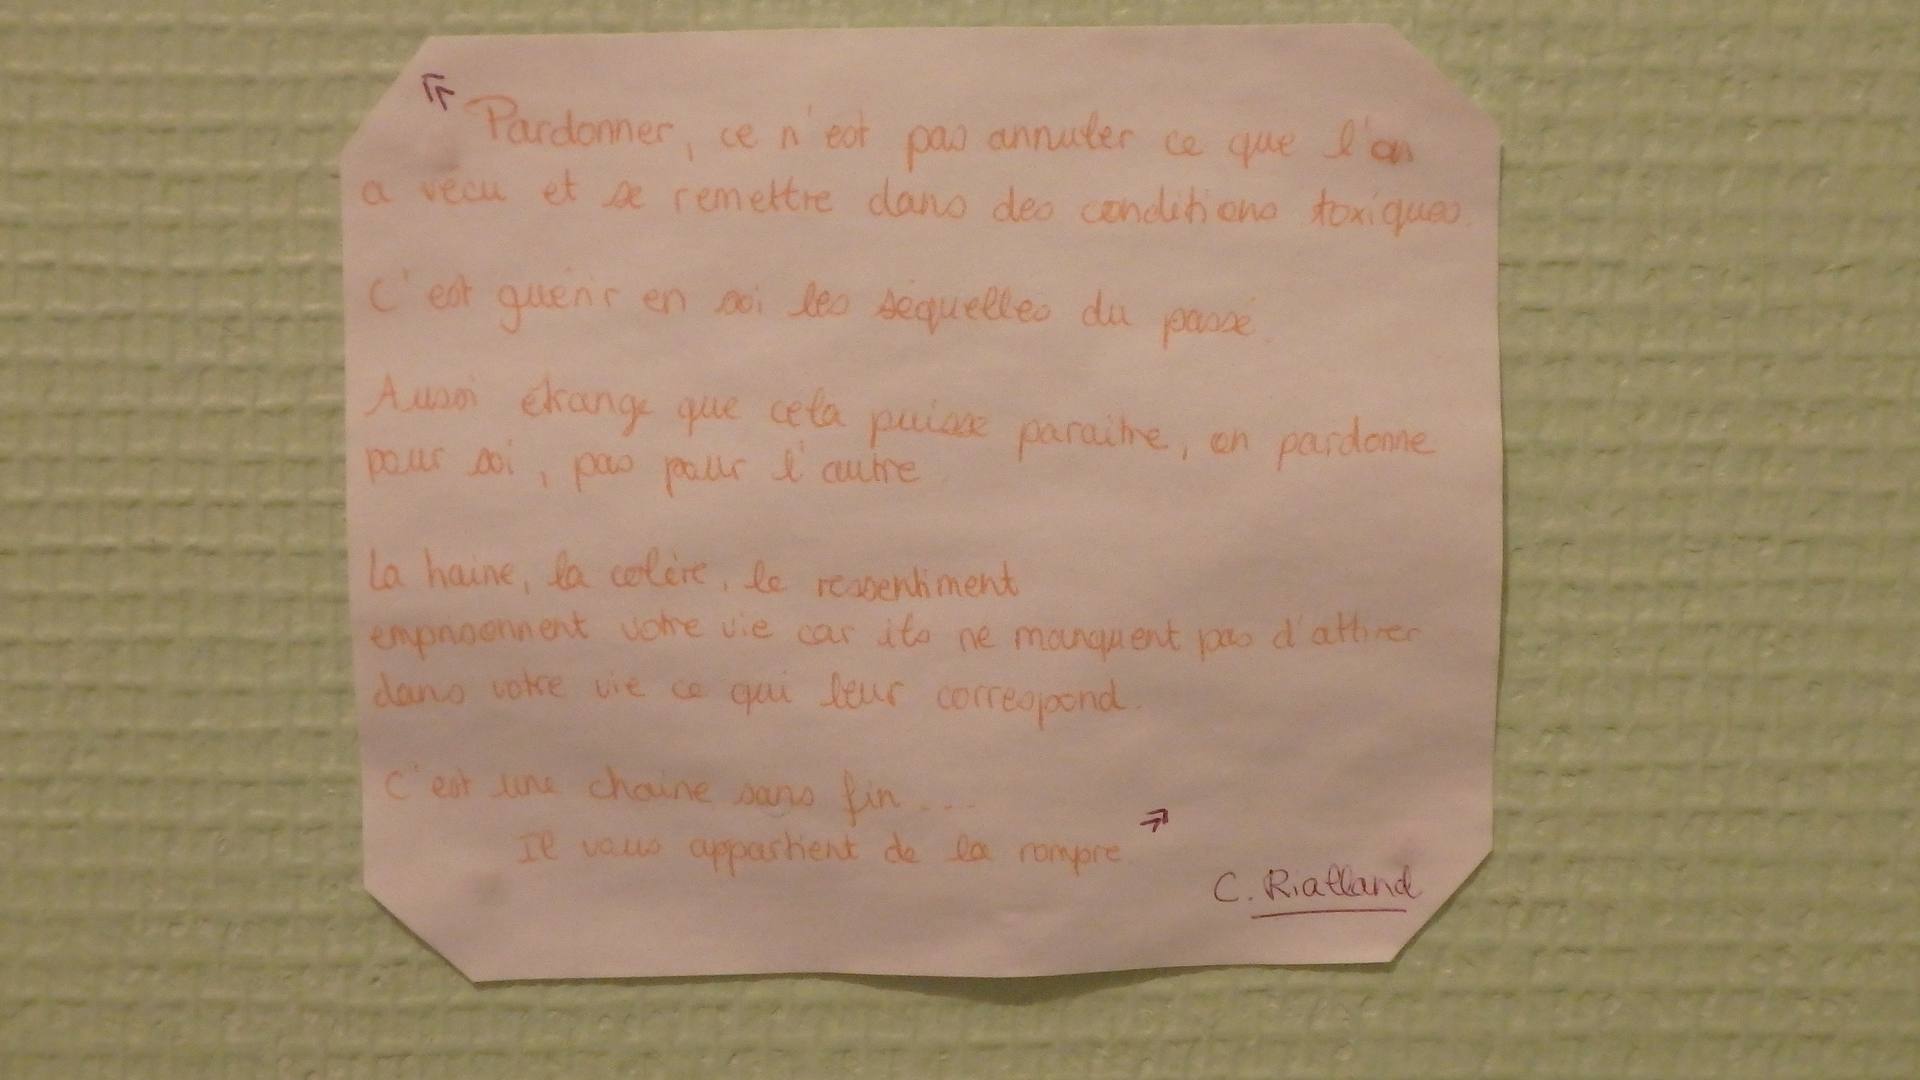 « Pardonner, ce n'est pas annuler ce que l'on
a vécu et se remettre dans des conditions toxiques.
C'est guérir en soi les séquelles du passé
Aussi étrange que cela puisse paraitre, on pardonne
pour soi, pas pour l'autre
La haine, la colère, le ressentiment
emprisonnent votre vie car ils ne manquent pas d'attirer
dans votre vie ce qui leur correspond.
C'est une chaine sans fin...
Il vous appartient de la rompre »
C. Rialland